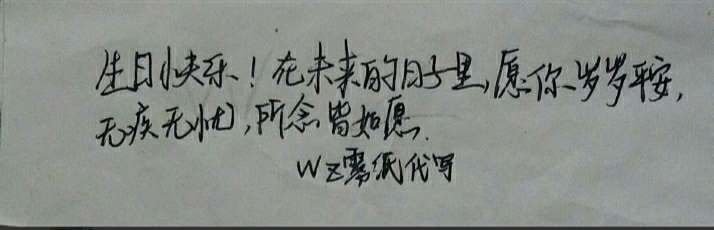 生日快乐！在未来的日子里,愿你岁岁平安,
无疾无忧,所念皆如愿.
WZ 代写